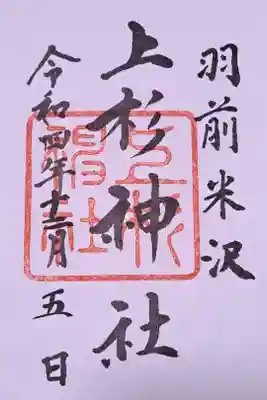 羽前米沢
上杉神社
令和四年十二月五日
上杉神社